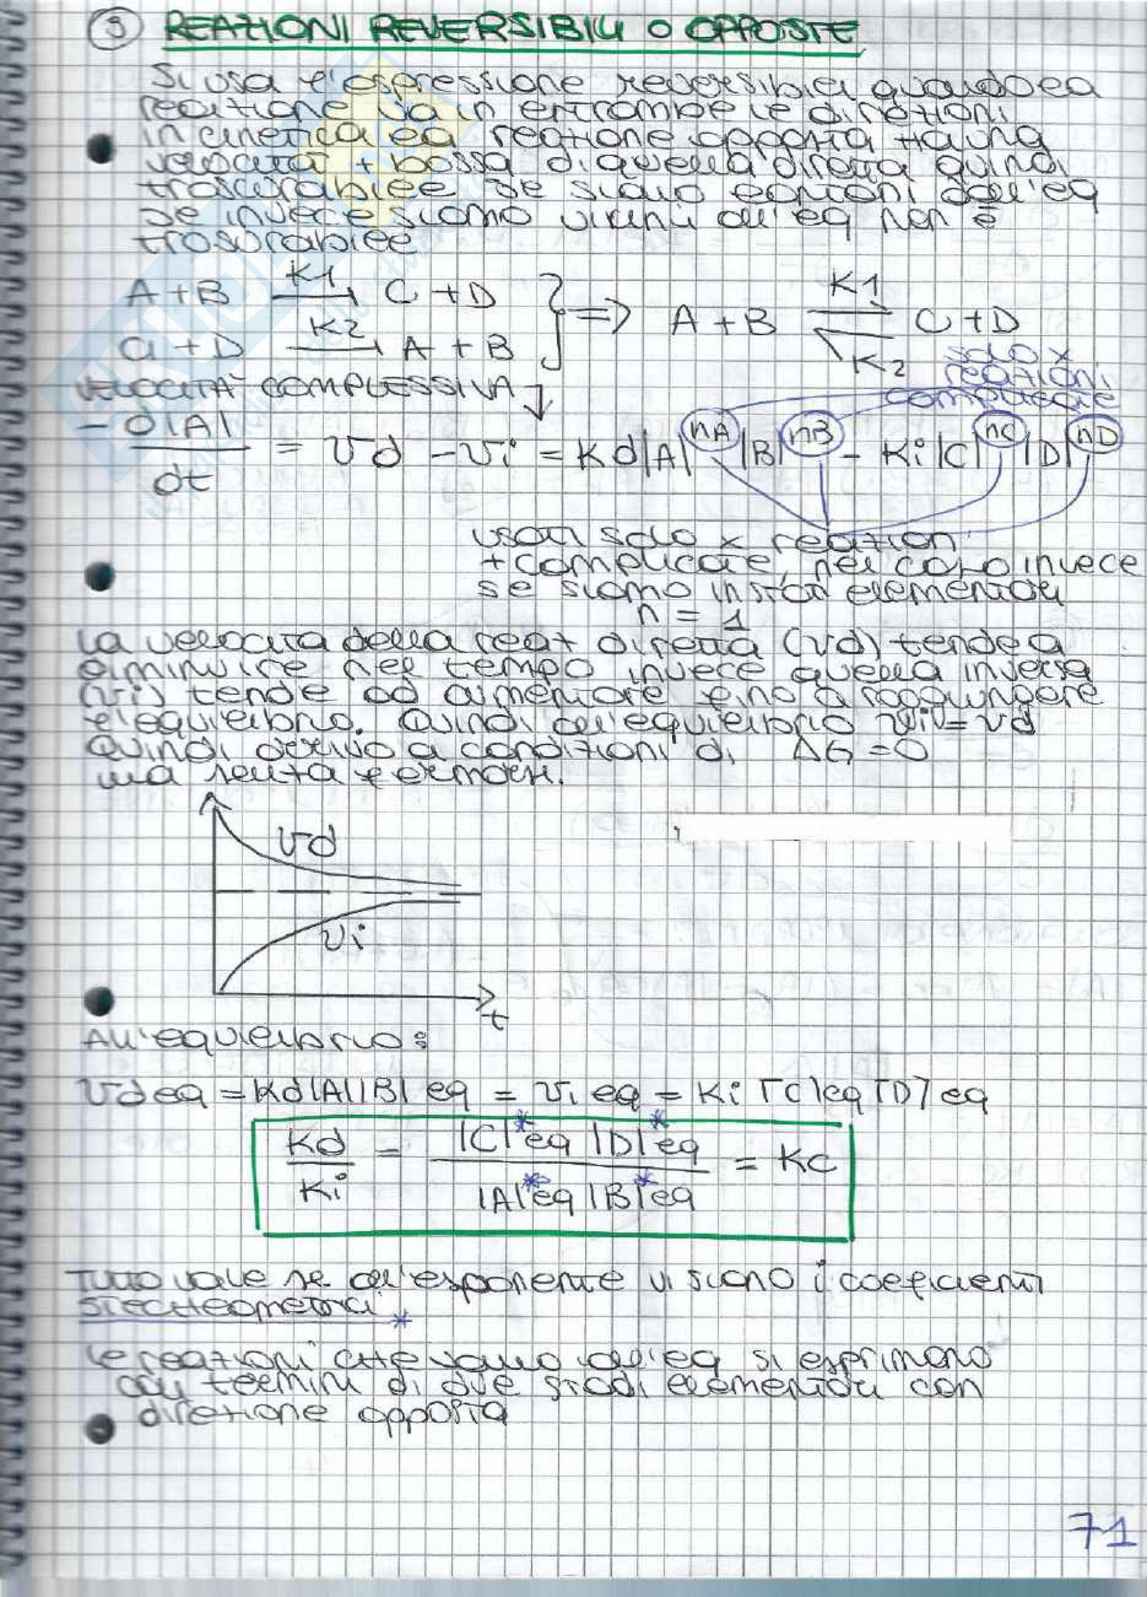 3 REAZIONI REVERSIBILI O OPPOSTE
Si usa l'espressione reversibili quando la
reazione va in entrambe le direzioni
in cinetica la reazione opposta ha una
velocità + bassa di quella diretta quindi
trascurabile se siamo lontani dall'eq
se invece siamo vicini all'eq non è
trascurabile
A+B K1→ C+D } ⇒ A+B K1⇌K2 C+D
C+D K2→ A+B
solo x
reazioni
complicate
VELOCITÀ COMPLESSIVA ↓
-d|A|/dt = vd - vi = Kd|A|^nA |B|^nB - Ki|C|^nC |D|^nD
usati solo x reazioni
+ complicate, nel caso invece
se siamo in stadi elementari
n = 1
La velocità della reaz diretta (vd) tende a
diminuire nel tempo invece quella inversa
(vi) tende ad aumentare fino a raggiungere
l'equilibrio. Quindi all'equilibrio vi = vd
Quindi arrivo a condizioni di ΔG = 0
ma senza fermarsi.
vd
vi
t
All'equilibrio:
vd eq = Kd|A||B| eq = vi eq = Ki [C]eq [D] eq
Kd/Ki = |C|*eq |D|*eq / |A|*eq |B|*eq = Kc
Tutto vale se all'esponente vi siano i coefficienti
stecheometrici *
Le reazioni che vanno all'eq si esprimono
con termini di due stadi elementari con
direzione opposta
71